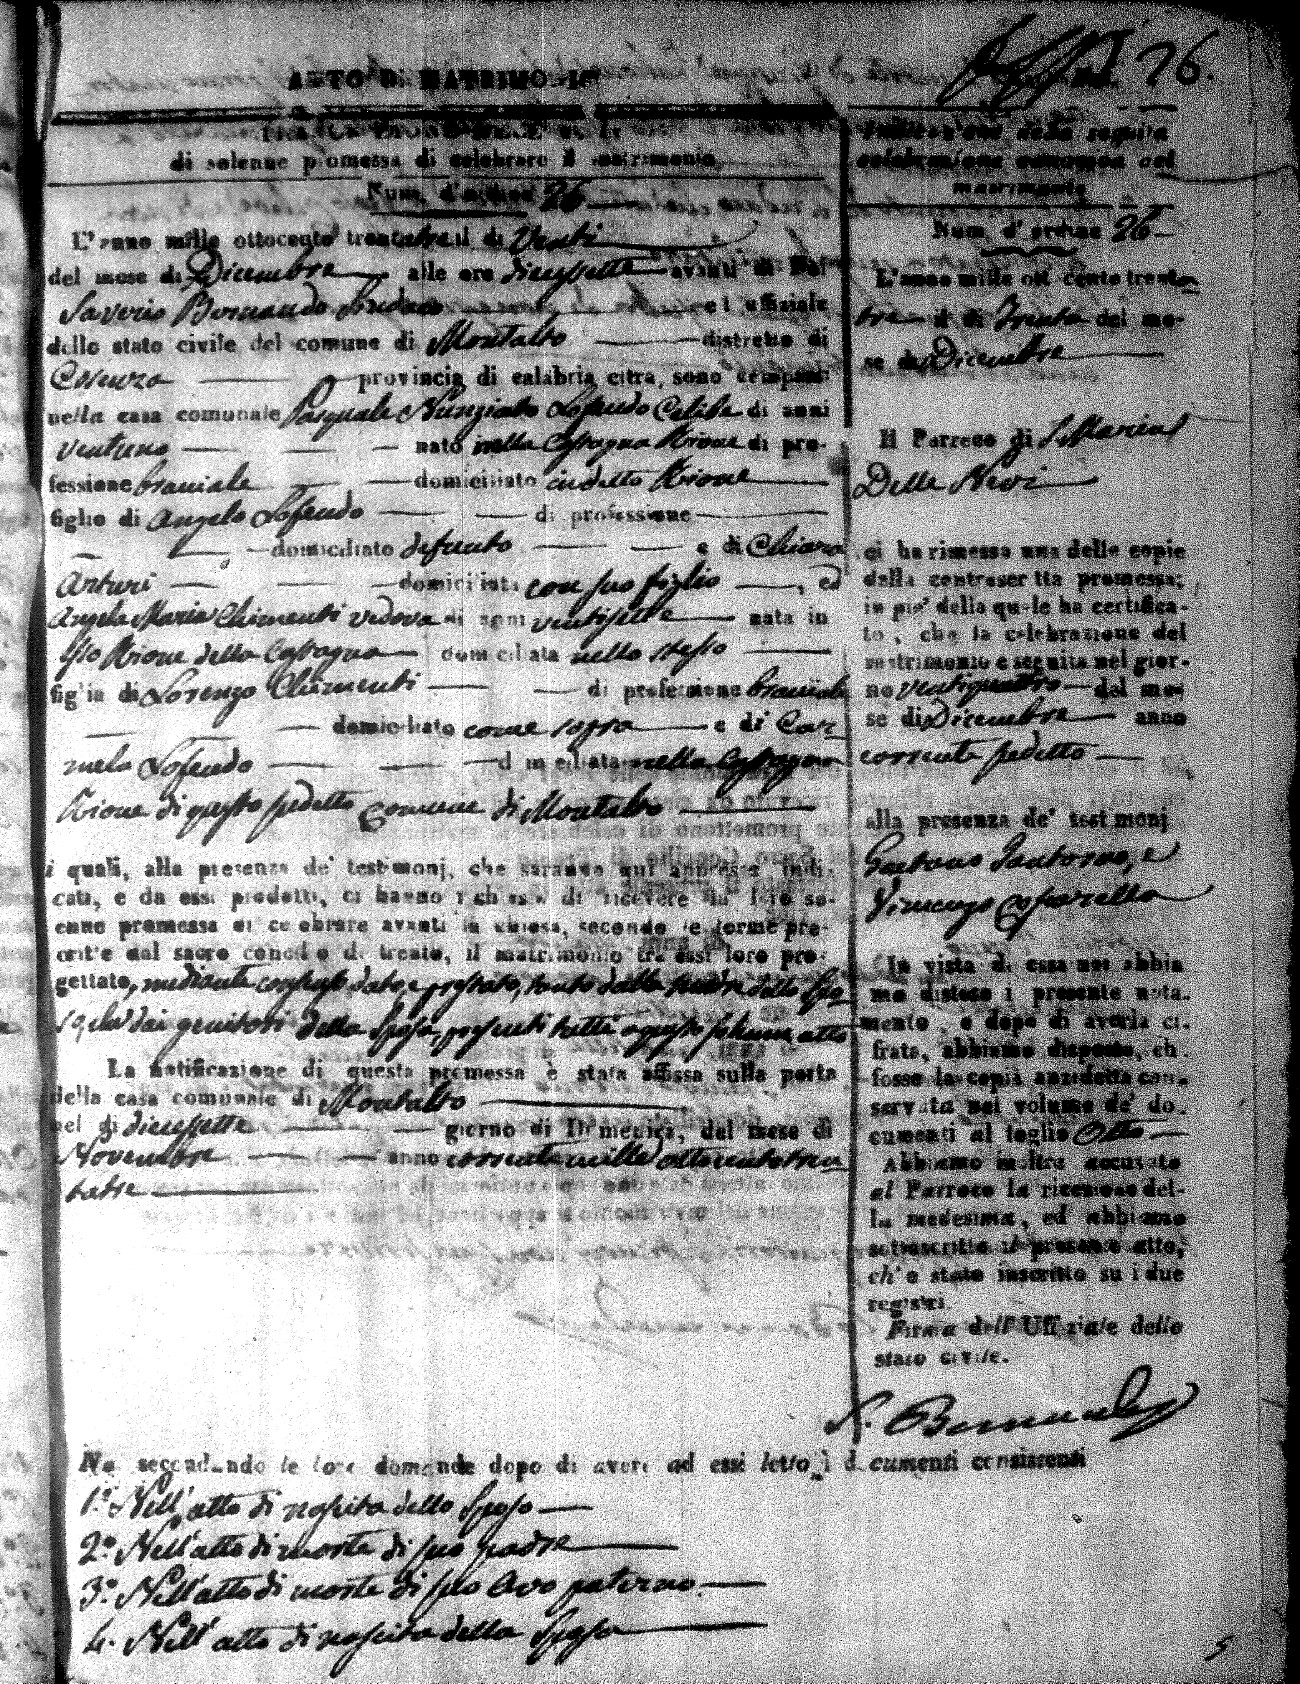 76.
ATTO DI MATRIMONIO
di solenne promessa di celebrare il matrimonio.
Num. d'ordine 26
L'anno mille ottocento trentatre il di Venti
del mese di Dicembre alle ore diecissette avanti di Noi
Saverio Bernaudo Sindaco ed uffiziale
dello stato civile del comune di Montalto distretto di
Cosenza provincia di calabria citra, sono comparsi
nella casa comunale Pasquale Nunziato Lofeudo Celibe di anni
ventuno nato nella Caspagna Rione di pro-
fessione braciale domiciliato in detto Rione
figlio di Angelo Lofeudo di professione
domiciliato defunto e di Chiara
Arturi domiciliata con suo figlio, ed
Angela Maria Chimenti vedova di anni ventisette nata in
Rione della Caspagna domiciliata nello stesso
figlia di Lorenzo Chimenti di professione braciale
domiciliato come sopra e di Car-
mela Lofeudo domiciliata nella Caspagna
Rione di questo sudetto Comune di Montalto
i quali, alla presenza de' testimonj, che saranno qui appresso indi-
cati, e da essi prodotti, ci hanno richiesto di ricevere la loro so-
lenne promessa di celebrare avanti la chiesa, secondo le forme pre-
scritte dal sacro concilio di trento, il matrimonio tra essi loro pro-
gettato, mediante consenso dato e prestato, tanto dalla madre dello Spo-
so, che dai genitori della Sposa, presenti tutti a questo solenne atto
La notificazione di questa promessa è stata affissa sulla porta
della casa comunale di Montalto
nel di diecissette giorno di Domenica, del mese di
Novembre anno corrente mille ottocento tren-
tatre
Noi secondando le loro domande dopo di avere ad essi letto i documenti consistenti
1.º Nell'atto di nascita dello Sposo
2.º Nell'atto di morte di suo padre
3.º Nell'atto di morte di suo Avo paterno.
4. Nell'atto di nascita della Sposa
Indicazione della seguita
celebrazione canonica del
matrimonio
Num. d'ordine 26
L'anno mille otto cento trenta-
tre il di Trenta del me-
se di Dicembre
Il Parroco di S. Maria
Delle Nevi
ci ha rimessa una delle copie
della controscritta promessa;
in piè della quale ha certifica-
to, che la celebrazione del
matrimonio è seguita nel gior-
no ventiquattro del me-
se di Dicembre anno
corrente sudetto
alla presenza de' testimonj
Gaetano Santoro, e
Vincenzo
In vista di essa noi abbia-
mo disteso il presente nota-
mento, e dopo di averla ci-
frata, abbiamo disposto, che
fosse la copia anzidetta con-
servata nel volume de' do-
cumenti al foglio Otto
Abbiamo inoltre accusato
al Parroco la ricezione del-
la medesima, ed abbiamo
sottoscritto il presente atto,
ch'è stato inscritto su i due
registri
Firma dell'Uffiziale dello
stato civile.
S. Bernaudo
5